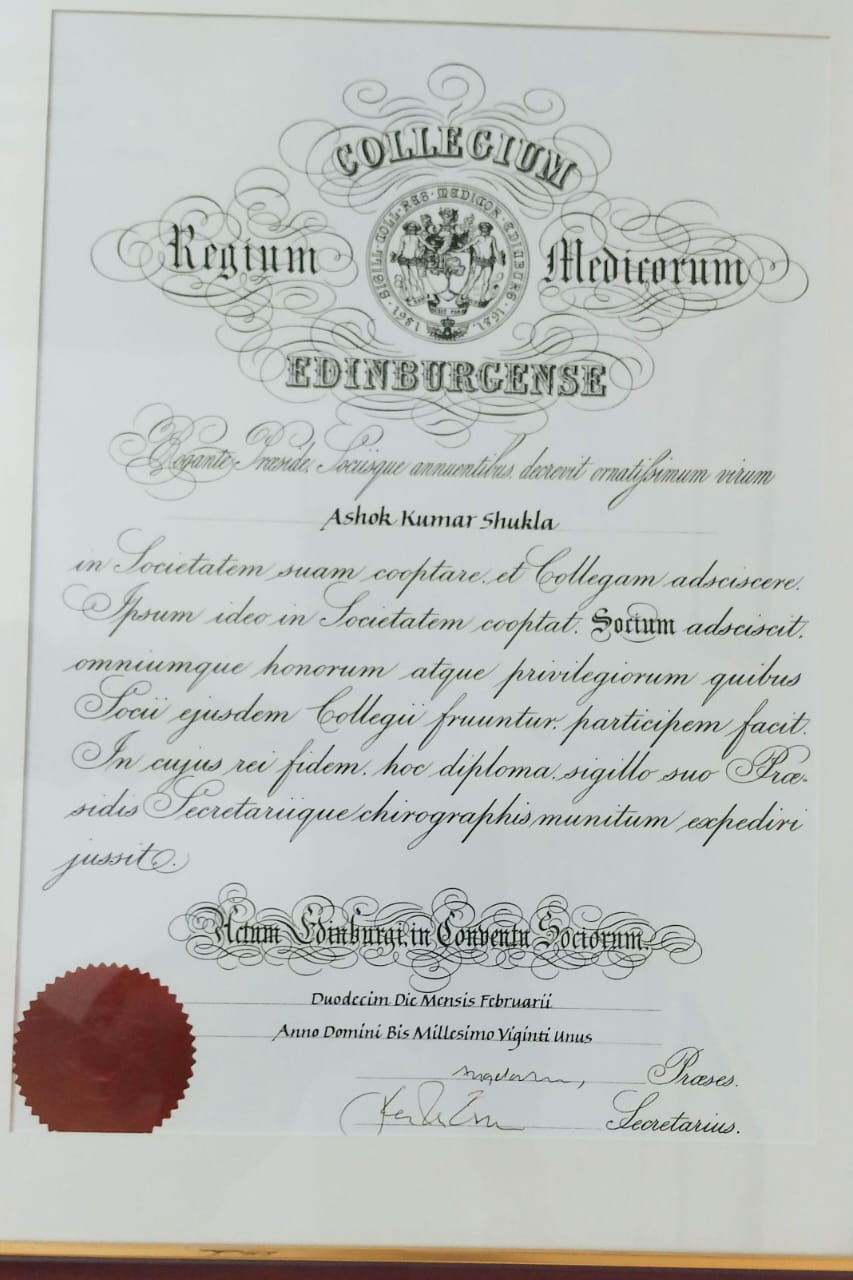 COLLEGIUM
Regium Medicorum
SIGILL·COLL·REG·MEDICOR·EDINBURG·1681·1861
EDINBURGENSE
Rogante Præside, Sociisque annuentibus, decrevit ornatissimum virum
Ashok Kumar Shukla
in Societatem suam cooptare, et Collegam adsciscere.
Ipsum ideo in Societatem cooptat, Socium adsciscit,
omniumque honorum atque privilegiorum quibus
Socii ejusdem Collegii fruuntur, participem facit.
In cujus rei fidem, hoc diploma, sigillo suo Præ-
sidis Secretariique chirographis munitum expediri
jussit.
Actum Edinburgi, in Conventu Sociorum,
Duodecim Die Mensis Februarii
Anno Domini Bis Millesimo Viginti Unus
Præses.
Secretarius.